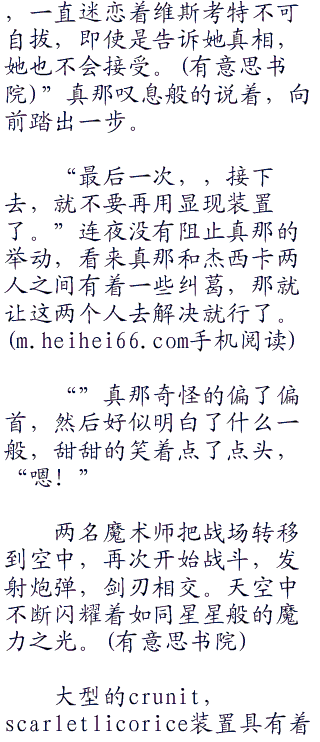 ，一直迷恋着维斯考特不可
自拔，即使是告诉她真相，
她也不会接受。(有意思书
院)”真那叹息般的说着，向
前踏出一步。
“最后一次，，接下
去，就不要再用显现装置
了。”连夜没有阻止真那的
举动，看来真那和杰西卡两
人之间有着一些纠葛，那就
让这两个人去解决就行了。
(m.heihei66.com手机阅读)
“”真那奇怪的偏了偏
首，然后好似明白了什么一
般，甜甜的笑着点了点头，
“嗯！”
两名魔术师把战场转移
到空中，再次开始战斗，发
射炮弹，剑刃相交。天空中
不断闪耀着如同星星般的魔
力之光。(有意思书院)
大型的crunit，
scarletlicorice装置具有着